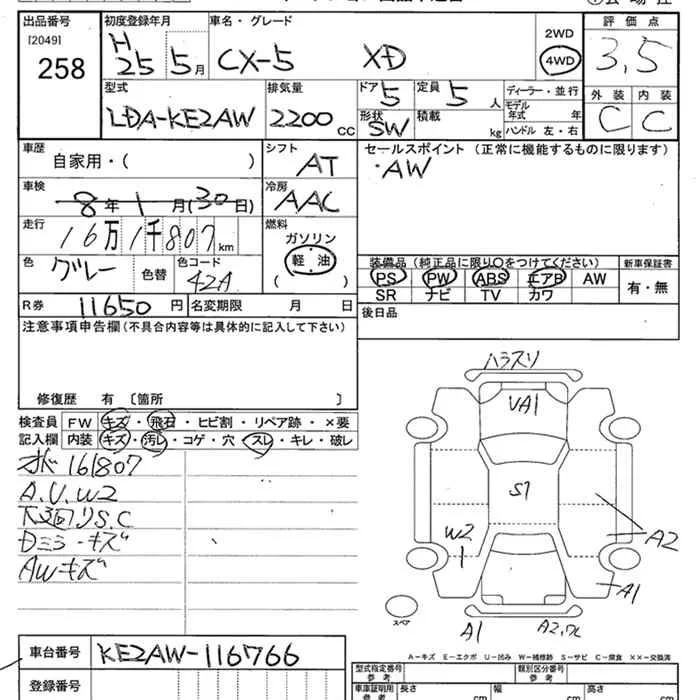 出品番号 初度登録年月 車名・グレード 2WD 評価点
[2049] H
258 25 5月 CX-5 XD 4WD 3.5
型式 排気量 ドア 5 定員 5 人 ディーラー・並行 外装 内装
LDA-KE2AW 2200 CC 形状 SW 積載 kg モデル年式 年 C C
ハンドル 左・右
車歴 自家用・( ) シフト AT セールスポイント (正常に機能するものに限ります)
・AW
車検 8年 1月(30日) 冷房 AAC
走行 16万1千807km 燃料 ガソリン
軽・油
( )
色 グレー 色替 色コード 42A
装備品(純正品に限り○をつけてください) 新車保証書
PS PW ABS エアB AW 有・無
SR ナビ TV カワ
R券 11650円 名変期限 月 日 後日品
注意事項申告欄(不具合内容等は具体的に記入して下さい)
修復歴 有 〔箇所 〕
検査員 FW キズ・飛石・ヒビ割・リペア跡・×要
記入欄 内装 キズ・汚レ・コゲ・穴・スレ・キレ・破レ
161807
A.U.W2
S.C
Dミラーキズ
AWキズ
ハラスリ
VA1
S1
W2
1
A2
A1
A1
A2
スペア
車台番号 KE2AW-116766
A-キズ E-エクボ U-凹み W-補修跡 S-サビ C-腐食 ××-交換済
登録番号
型式指定番号 参考 類別区分番号 参考
車庫証明用 参考 長さ cm 幅 cm 高さ cm